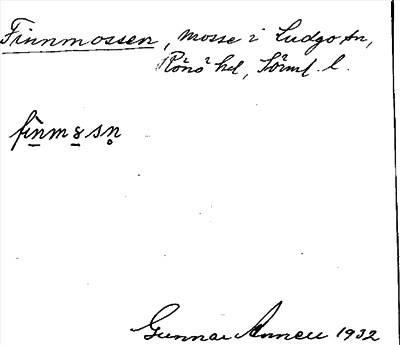 Finnmossen, mosse i Ludgo sn,
Rönö hd, Sörml. l.
fin̲m8̲sn̥
Gunnar Annell 1932